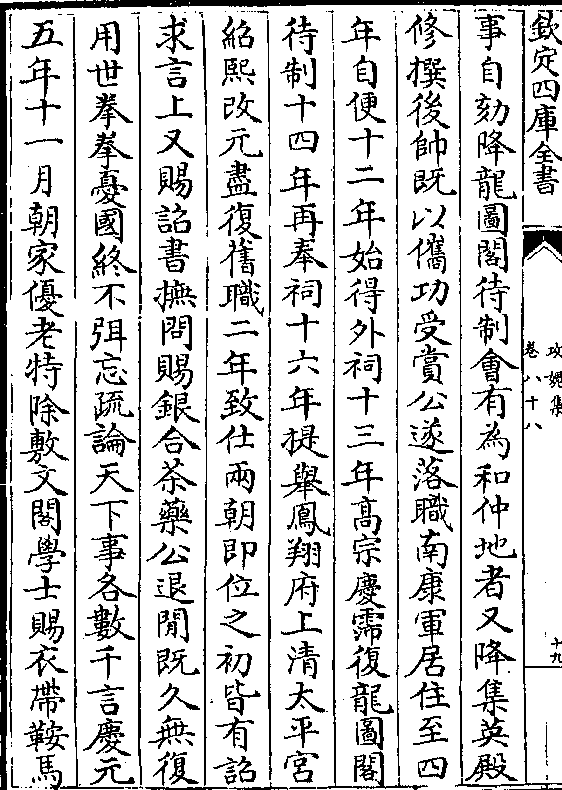 欽定四庫全書
攻媿集
卷八十八
十九
事自劾降龍圖閣待制會有為和仲地者又降集英殿
修撰後帥既以儁功受賞公遂落職南康軍居住至四
年自便十二年始得外祠十三年髙宗慶霈復龍圖閣
待制十四年再奉祠十六年提舉鳳翔府上清太平宮
紹熙改元盡復舊職二年致仕兩朝即位之初皆有詔
求言上又賜詔書撫問賜銀合茶藥公退閒既久無復
用世拳拳憂國終不弭忘疏論天下事各數千言慶元
五年十一月朝家優老特除敷文閣學士賜衣帶鞍馬